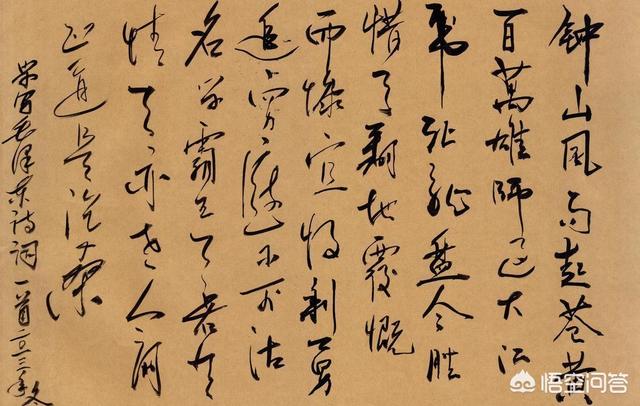 钟山风雨起苍黄
百萬雄师过大江
虎踞龙盘今胜
惜天翻地覆慨
而慷宜将剩勇
追穷寇不可沽
名学霸王天若有
情天亦老人间
正道是沧桑
毛泽东诗词一首
悟空问答